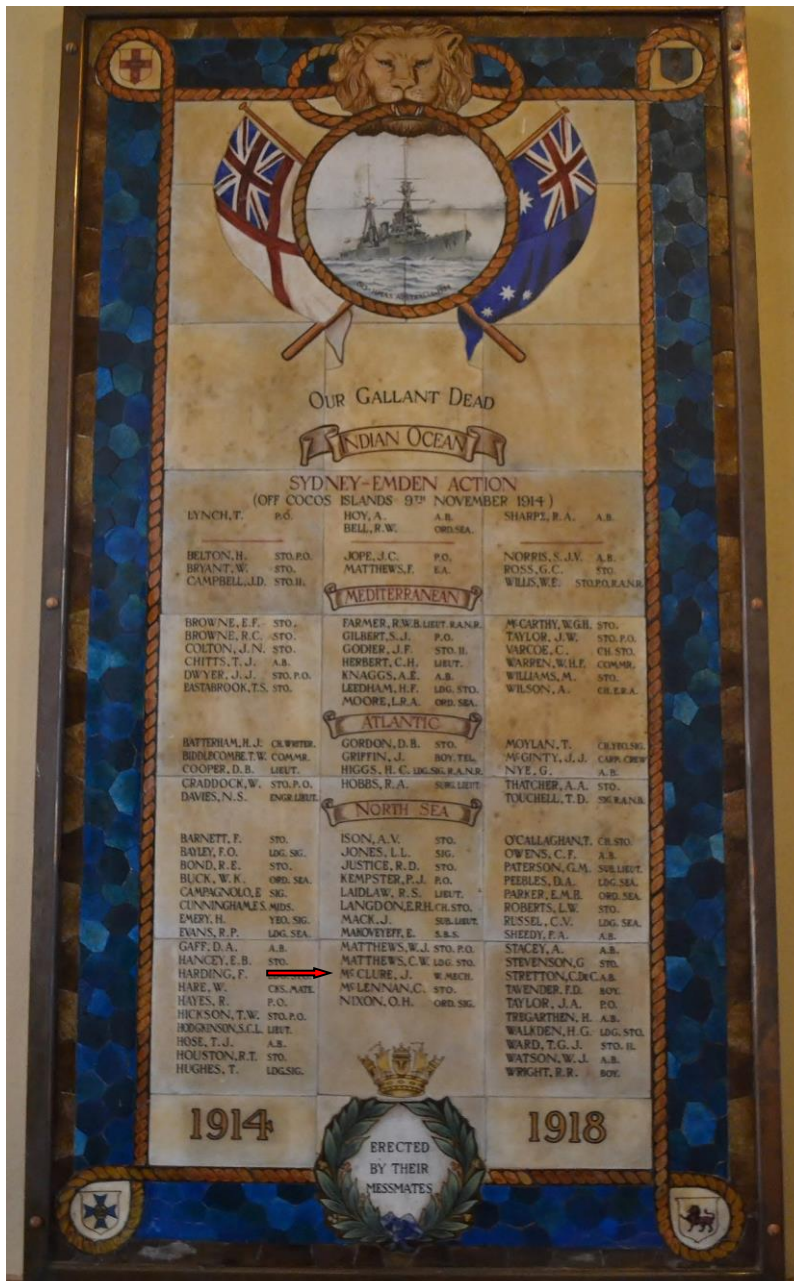 AUSTRALIA
OUR GALLANT DEAD
INDIAN OCEAN
SYDNEY-EMDEN ACTION
(OFF COCOS ISLANDS 9TH NOVEMBER 1914)
LYNCH, T. P.O.
HOY, A. A.B.
BELL, R.W. ORD.SEA.
SHARPE, R.A. A.B.
BELTON, H. STO.P.O.
BRYANT, W. STO.
CAMPBELL, J.D. STO.II.
JOPE, J.C. P.O.
MATTHEWS, F. E.A.
NORRIS, S.J.V. A.B.
ROSS, G.C. STO.
WILLIS, W.E. STO.P.O.R.A.N.R.
MEDITERRANEAN
BROWNE, E.F. STO.
BROWNE, R.C. STO.
COLTON, J.N. STO.
CHITTS, T.J. A.B.
DWYER, J.J. STO.P.O.
EASTABROOK, T.S. STO.
FARMER, R.W.B. LIEUT. R.A.N.R.
GILBERT, S.J. P.O.
GODIER, J.F. STO.II.
HERBERT, C.H. LIEUT.
KNAGGS, A.E. A.B.
LEEDHAM, H.F. LDG. STO.
MOORE, L.R.A. ORD. SEA.
McCARTHY, W.G.H. STO.
TAYLOR, J.W. STO. P.O.
VARCOE, C. CH. STO.
WARREN, W.H.F. COMMR.
WILLIAMS, M. STO.
WILSON, A. CH. E.R.A.
ATLANTIC
BATTERHAM, H.J. CH. WRITER.
BIDDLECOMBE, T.W. COMMR.
COOPER, D.B. LIEUT.
CRADDOCK, W. STO.P.O.
DAVIES, N.S. ENGR LIEUT.
GORDON, D.B. STO.
GRIFFIN, J. BOY. TEL.
HIGGS, H.C. LDG. SIG. R.A.N.R.
HOBBS, R.A. SURG. LIEUT.
MOYLAN, T. CH. YEO. SIG.
McGINTY, J.J. CARP. CREW
NYE, G. A.B.
THATCHER, A.A. STO.
TOUCHELL, T.D. SIG. R.A.N.B.
NORTH SEA
BARNETT, F. STO.
BAYLEY, F.O. LDG. SIG.
BOND, R.E. STO.
BUCK, W.K. ORD. SEA.
CAMPAGNOLO, E SIG.
CUNNINGHAM, E.S. MIDS.
EMERY, H. YEO. SIG.
EVANS, R.P. LDG. SEA.
GAFF, D.A. A.B.
HANCEY, E.B. STO.
HARDING, F.
HARE, W. CKS. MATE.
HAYES, R. P.O.
HICKSON, T.W. STO.P.O.
HODGKINSON, S.C.L. LIEUT.
HOSE, T.J. A.B.
HOUSTON, R.T. STO.
HUGHES, T. LDG.SIG.
ISON, A.V. STO.
JONES, L.L. SIG.
JUSTICE, R.D. STO.
KEMPSTER, P.J. P.O.
LAIDLAW, R.S. LIEUT.
LANGDON, E.R.H. CH. STO.
MACK, J. SUB. LIEUT.
MAKOVEYEFF, E. S.B.S.
MATTHEWS, W.J. STO. P.O.
MATTHEWS, C.W. LDG. STO.
McCLURE, J. W. MECH.
McLENNAN, C. STO.
NIXON, O.H. ORD. SIG.
O'CALLAGHAN, T. CH. STO.
OWENS, C.F. A.B.
PATERSON, G.M. SUB. LIEUT.
PEEBLES, D.A. LDG. SEA.
PARKER, E.M.B. ORD. SEA.
ROBERTS, L.W. STO.
RUSSEL, C.V. LDG. SEA.
SHEEDY, F.A. A.B.
STACEY, A. A.B.
STEVENSON, G STO.
STRETTON, C.DE C. A.B.
TAVENDER, F.D. BOY.
TAYLOR, J.A. P.O.
TREGARTHEN, H. A.B.
WALKDEN, H.G. LDG. STO.
WARD, T.G.J. STO. II.
WATSON, W.J. A.B.
WRIGHT, R.R. BOY.
1914
1918
ERECTED
BY THEIR
MESSMATES